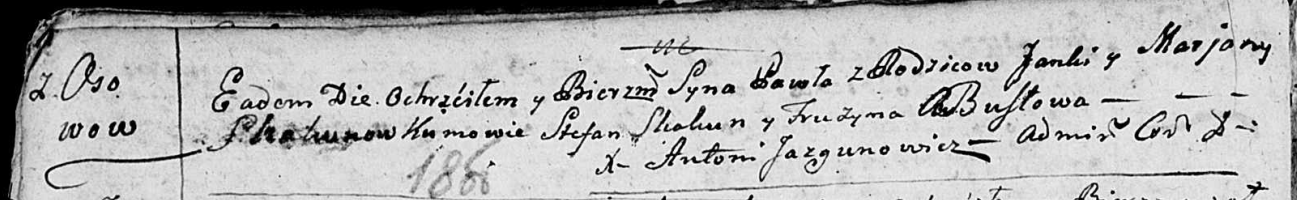 z Oso
wow
Eadem Die Ochrzciłem y Bierzm Syna Pawła z Rodzicow Janki y Marjany
Skakunow Kumowie Stefan Skakun y Fruzyna Busłowa — — —
X– Antoni Jazgunowicz — Admin
186